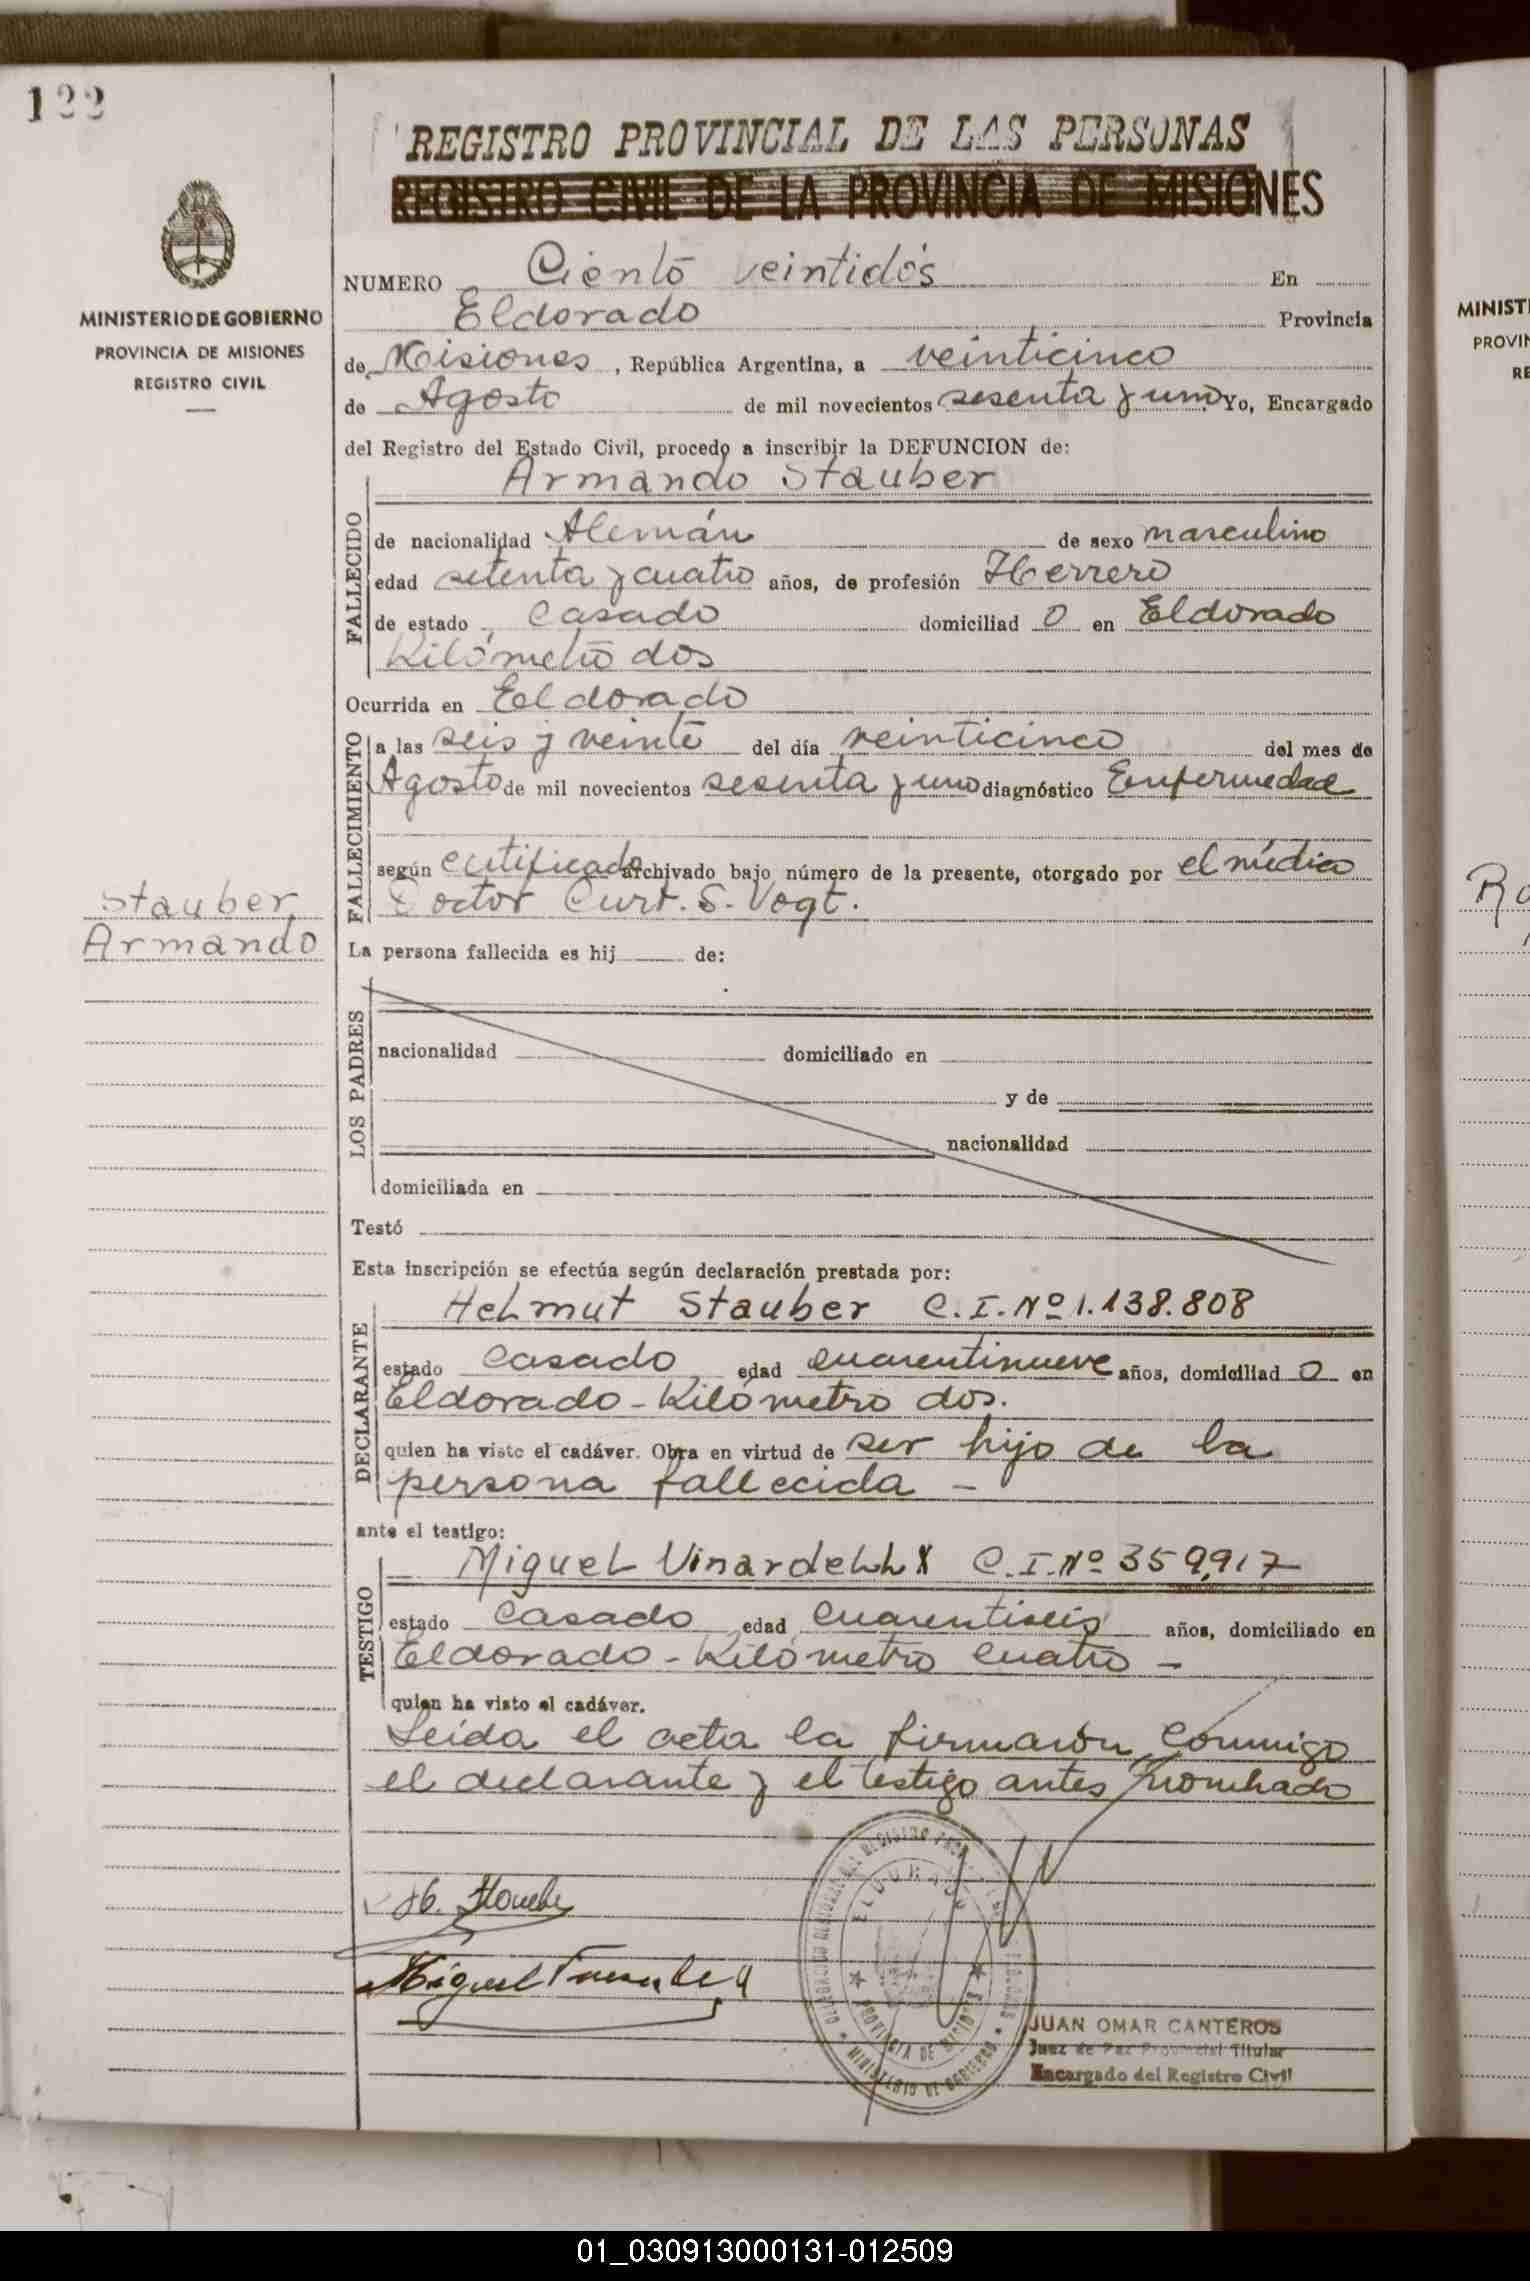 122
REGISTRO PROVINCIAL DE LAS PERSONAS
REGISTRO CIVIL DE LA PROVINCIA DE MISIONES
MINISTERIO DE GOBIERNO
PROVINCIA DE MISIONES
REGISTRO CIVIL
NUMERO Ciento veintidós En
Eldorado Provincia
de Misiones, República Argentina, a veinticinco
de Agosto de mil novecientos sesenta y uno Yo, Encargado
del Registro del Estado Civil, procedo a inscribir la DEFUNCION de:
Armando Stauber
FALLECIDO
de nacionalidad Alemán de sexo masculino
edad setenta y cuatro años, de profesión Herrero
de estado Casado domiciliad o en Eldorado
Kilómetro dos
Ocurrida en Eldorado
FALLECIMIENTO
a las seis y veinte del día veinticinco del mes de
Agosto de mil novecientos sesenta y uno diagnóstico Enfermedad
según certificado archivado bajo número de la presente, otorgado por el médico
Doctor Curt. S. Vogt.
Stauber
Armando
La persona fallecida es hij de:
LOS PADRES
nacionalidad domiciliado en
y de
nacionalidad
domiciliada en
Testó
Esta inscripción se efectúa según declaración prestada por:
Helmut Stauber C.I. Nº 1.138.808
DECLARANTE
estado Casado edad cuarentinueve años, domiciliad o en
Eldorado - Kilómetro dos.
quien ha visto el cadáver. Obra en virtud de ser hijo de la
persona fallecida -
ante el testigo:
Miguel Vinardell C.I. Nº 359,917
TESTIGO
estado Casado edad cuarentiseis años, domiciliado en
Eldorado - Kilómetro cuatro -
quien ha visto el cadáver.
Leída el acta la firmaron conmigo
el declarante y el testigo antes nombrado
H. Stauber
Miguel
ELDORADO
PROVINCIA DE MISIONES
MINISTERIO DE GOBIERNO
JUAN OMAR CANTEROS
Juez de Paz Provincial Titular
Encargado del Registro Civil
MINIST
PROVIN
RE
01_030913000131-012509